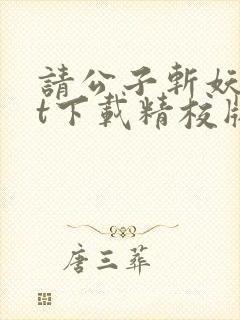 請公子斬妖
t下載精校版
唐三葬